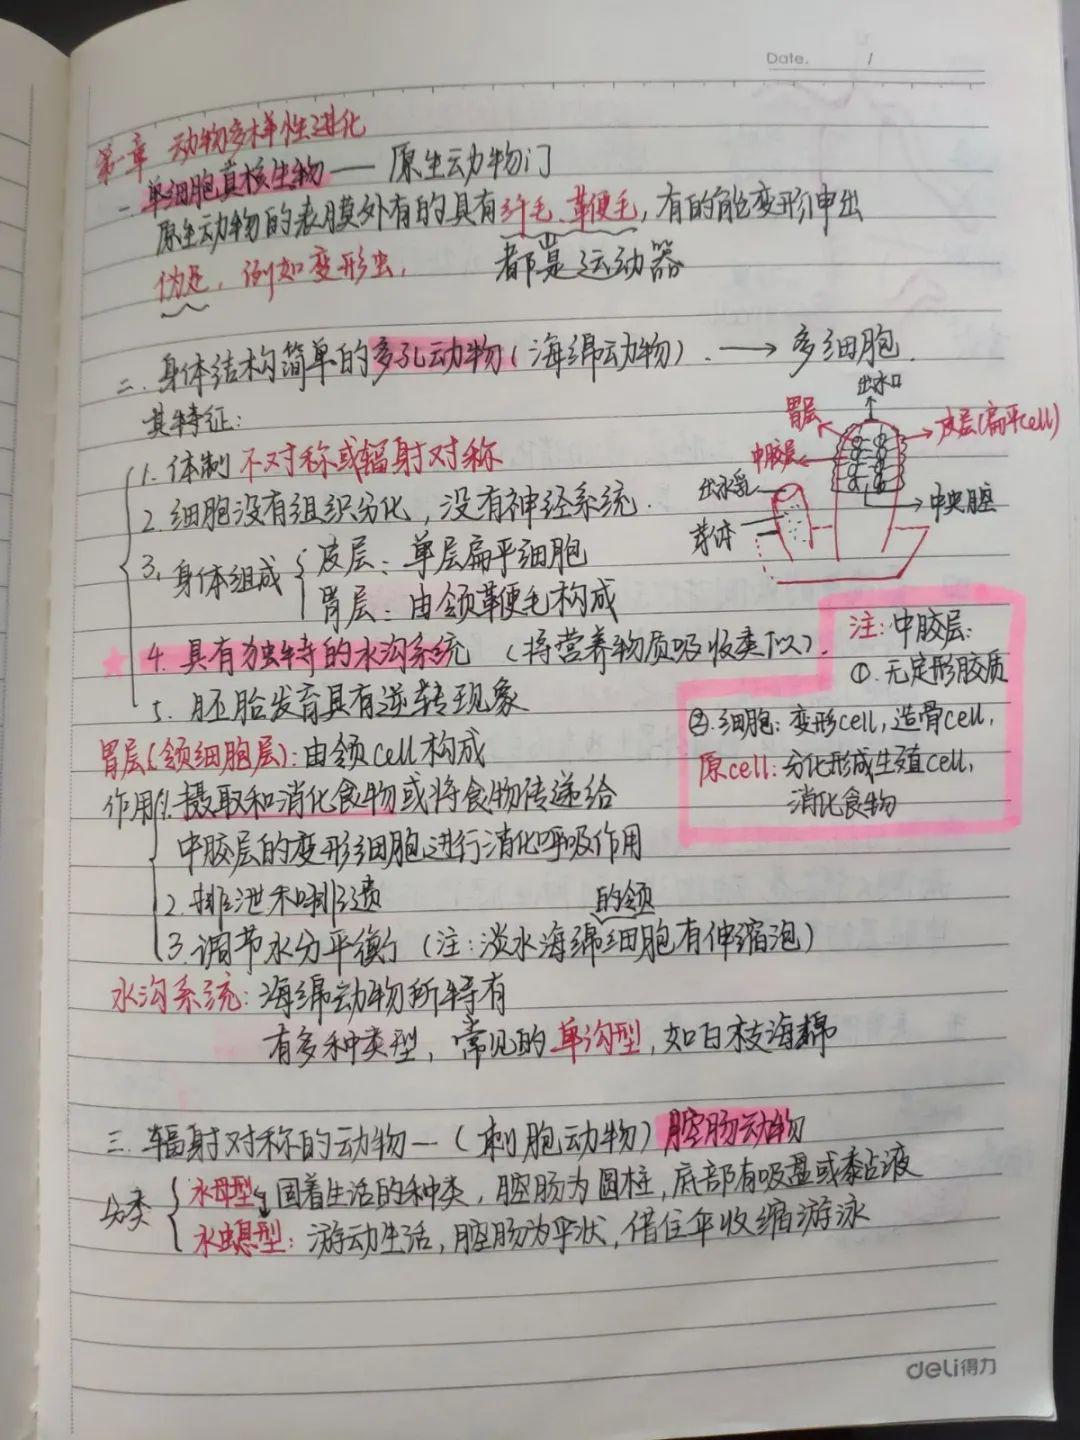 Date. /
第一章 动物多样性进化
一. 单细胞真核生物 —— 原生动物门
原生动物的表膜外有的具有纤毛、鞭毛, 有的能变形伸出
伪足, 例如变形虫, 都是运动器
二. 身体结构简单的多孔动物(海绵动物). → 多细胞.
其特征:
1. 体制 不对称或辐射对称
2. 细胞没有组织分化, 没有神经系统.
3. 身体组成
皮层: 单层扁平细胞
胃层: 由领鞭毛构成
★ 4. 具有独特的水沟系统 (将营养物质吸收类似).
5. 胚胎发育具有逆转现象
出水口
胃层
皮层(扁平cell)
中胶层
出水孔
中央腔
芽体
注: 中胶层:
①. 无定形胶质
②. 细胞: 变形cell, 造骨cell,
原cell: 分化形成生殖cell,
消化食物
胃层(领细胞层): 由领cell构成
作用 1. 摄取和消化食物或将食物传递给
中胶层的变形细胞进行消化呼吸作用
2. 排泄和排遗
的领
3. 调节水分平衡 (注: 淡水海绵细胞有伸缩泡)
水沟系统: 海绵动物所特有
有多种类型, 常见的单沟型, 如白枝海棉
三. 辐射对称的动物一 (刺胞动物) 腔肠动物
分类
水母型: 固着生活的种类, 腔肠为圆柱, 底部有吸盘或黏液
水螅型: 游动生活, 腔肠为平状, 借住伞收缩游泳
deli得力